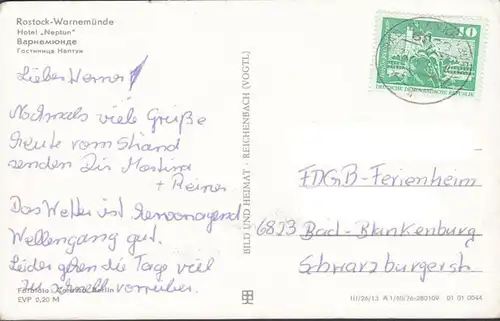 Rostock-Warnemünde
Hotel „Neptun"
Варнемюнде
Гостиница Нептун
Lieber Werner!
Nochmals viele Grüße
heute vom Strand
senden Dir Martina
+ Reiner
Das Wetter ist hervorragend
Wellengang gut.
Leider gehen die Tage viel
zu schnell vorrüber.
Berlin
EVP 0,20 M
BILD UND HEIMAT · REICHENBACH (VOGTL)
10
DEUTSCHE DEMOKRATISCHE REPUBLIK
FDGB-Ferienheim
6823 Bad-Blankenburg
Schwarzburgerstr
III/26/13 A 1/60/76-280109 01 01 0044